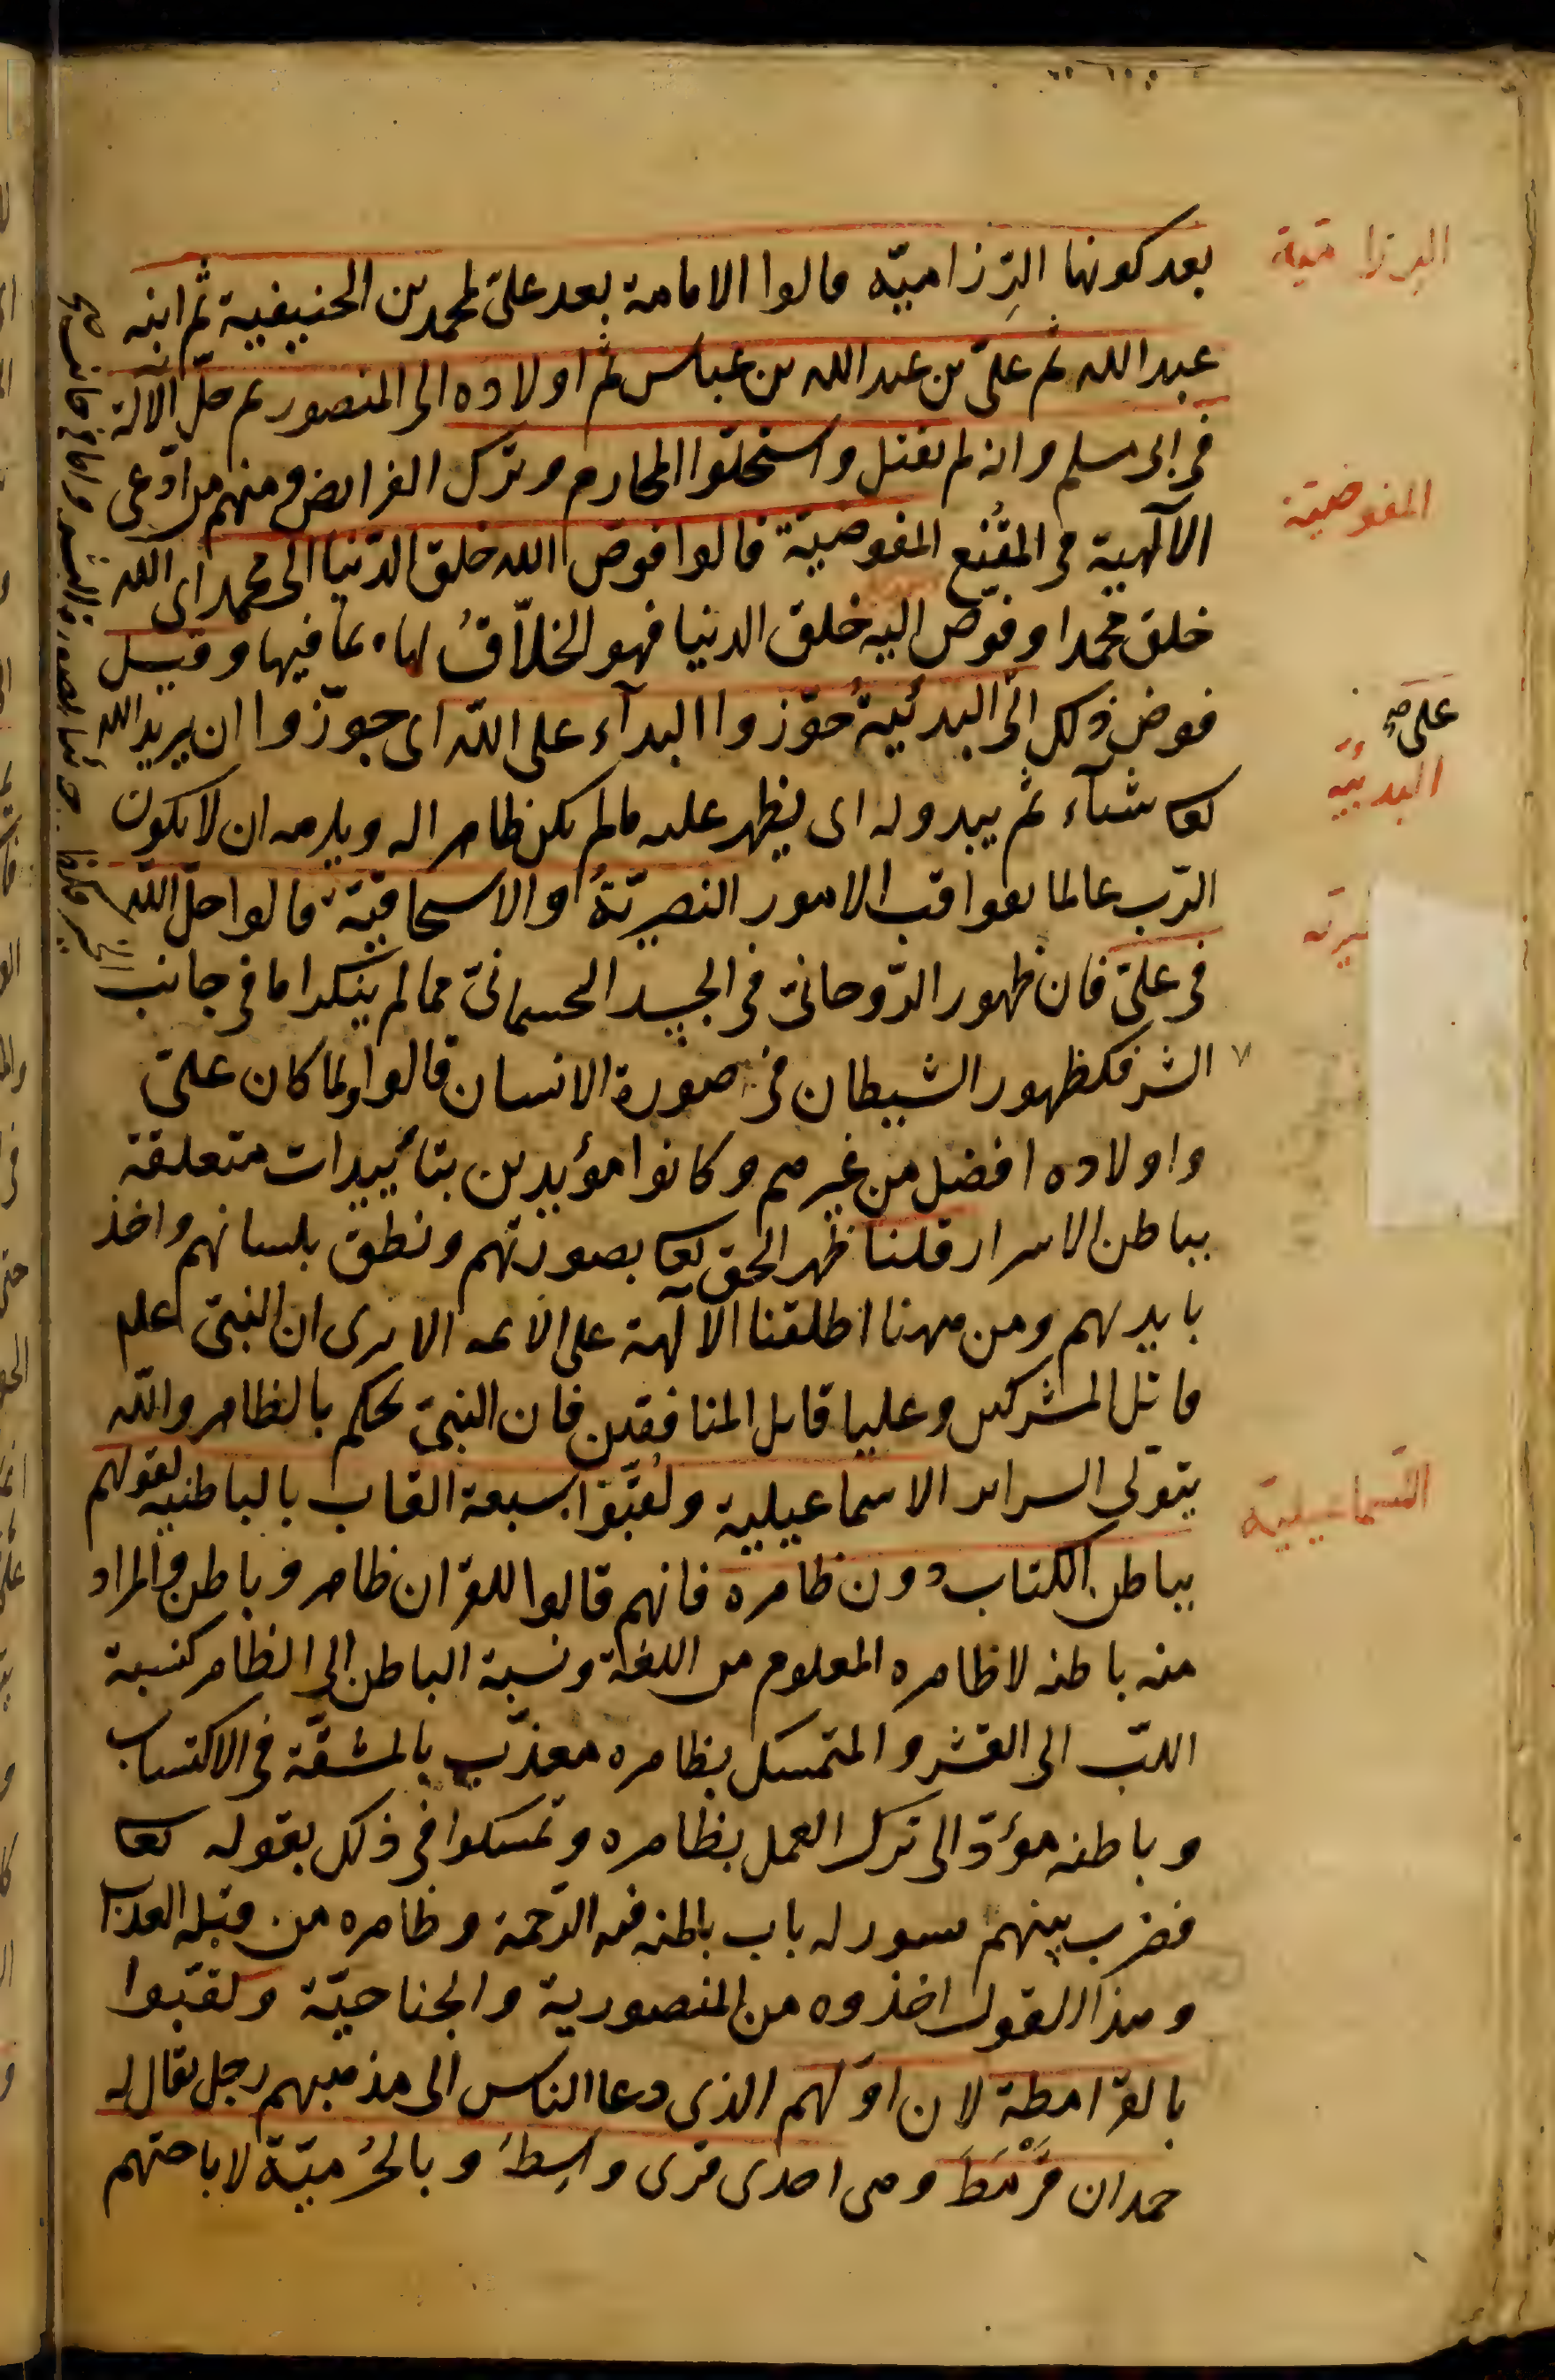 بعد كونها الرِّزاميّة قالوا الامامة بعد علىّ لمحمد بن الحنيفية ثم ابنه
عبد الله ثم علىّ بن عبد الله بن عباس ثم اولاده الى المنصور ثم حلّ الاله
فى ابى مسلم وانه لم يقتل واستحلّوا المحارم وترك الفرايض ومنهم من ادّعى
الآلهية فى المقنّع المفوضيّة قالوا فوض الله خلق الدّنيا الى محمد اى الله
خلق محمدا وفوّض اليه خلق الدنيا فهو الخلاّقُ لها بما فيها وقيل
فوض ذلك الى البدئيةُ جوّزوا البدآء على الله اى جوّزوا ان يريد الله
تعا شآء ثم يبدو له اى يظهر عليه مالم يكن ظاهرا له ويلزمه ان لا يكون
الرّب عالما بعواقب الامور النصيريّةُ والاسحاقيّة قالوا حلّ الله
فى علىّ فان ظهور الرّوحانىّ فى الجسد الجسمانىّ مما لم ينكر اما فى جانب
الشر فكظهور الشيطان فى صورة الانسان قالوا ولما كان علىّ
واولاده افضل من غيرهم وكانوا مؤيدين بتأييدات متعلقة
بباطن الاسرار قلنا ظهر الحق تعا بصورتهم ونطق بلسانهم واخذ
بايديهم ومن ههنا اطلقنا الآلهة على الائمه الا يرى ان النبىّ علم
قاتل المشركين وعليا قاتل المنافقين فان النبىّ يحكم بالظاهر والله
يتولى السراير الاسماعيلية ولُقّبُوا بسبعة القاب بالباطنية لقولهم
بباطن الكتاب دون ظاهره فانهم قالوا للقران ظاهر وباطن والمراد
منه باطنه لا ظاهره المعلوم من اللغة ونسبة الباطن الى الظاهر كنسبة
اللبّ الى القشر والمتمسك بظاهره معذّب بالمشقّة فى الاكتساب
وباطنه مؤدّ الى ترك العمل بظاهره وتمسكوا فى ذلك بقوله تعا
فضرب بينهم بسور له باب باطنه فيه الرّحمة وظاهره من قبله العذاب
وهذا القول اخذوه من المنصورية والجناحيّة ولقبّوا
بالقرامطة لان اوّلهم الذى دعا الناس الى مذهبهم رجل يقال له
حمدان قَرْمَطَ وهى احدى قرى واسِطَ وبالحُرْميّة لاباحتهم
الرزامية
المفوضيّة
على صح
البدئيّه
يريه
السماعيلية